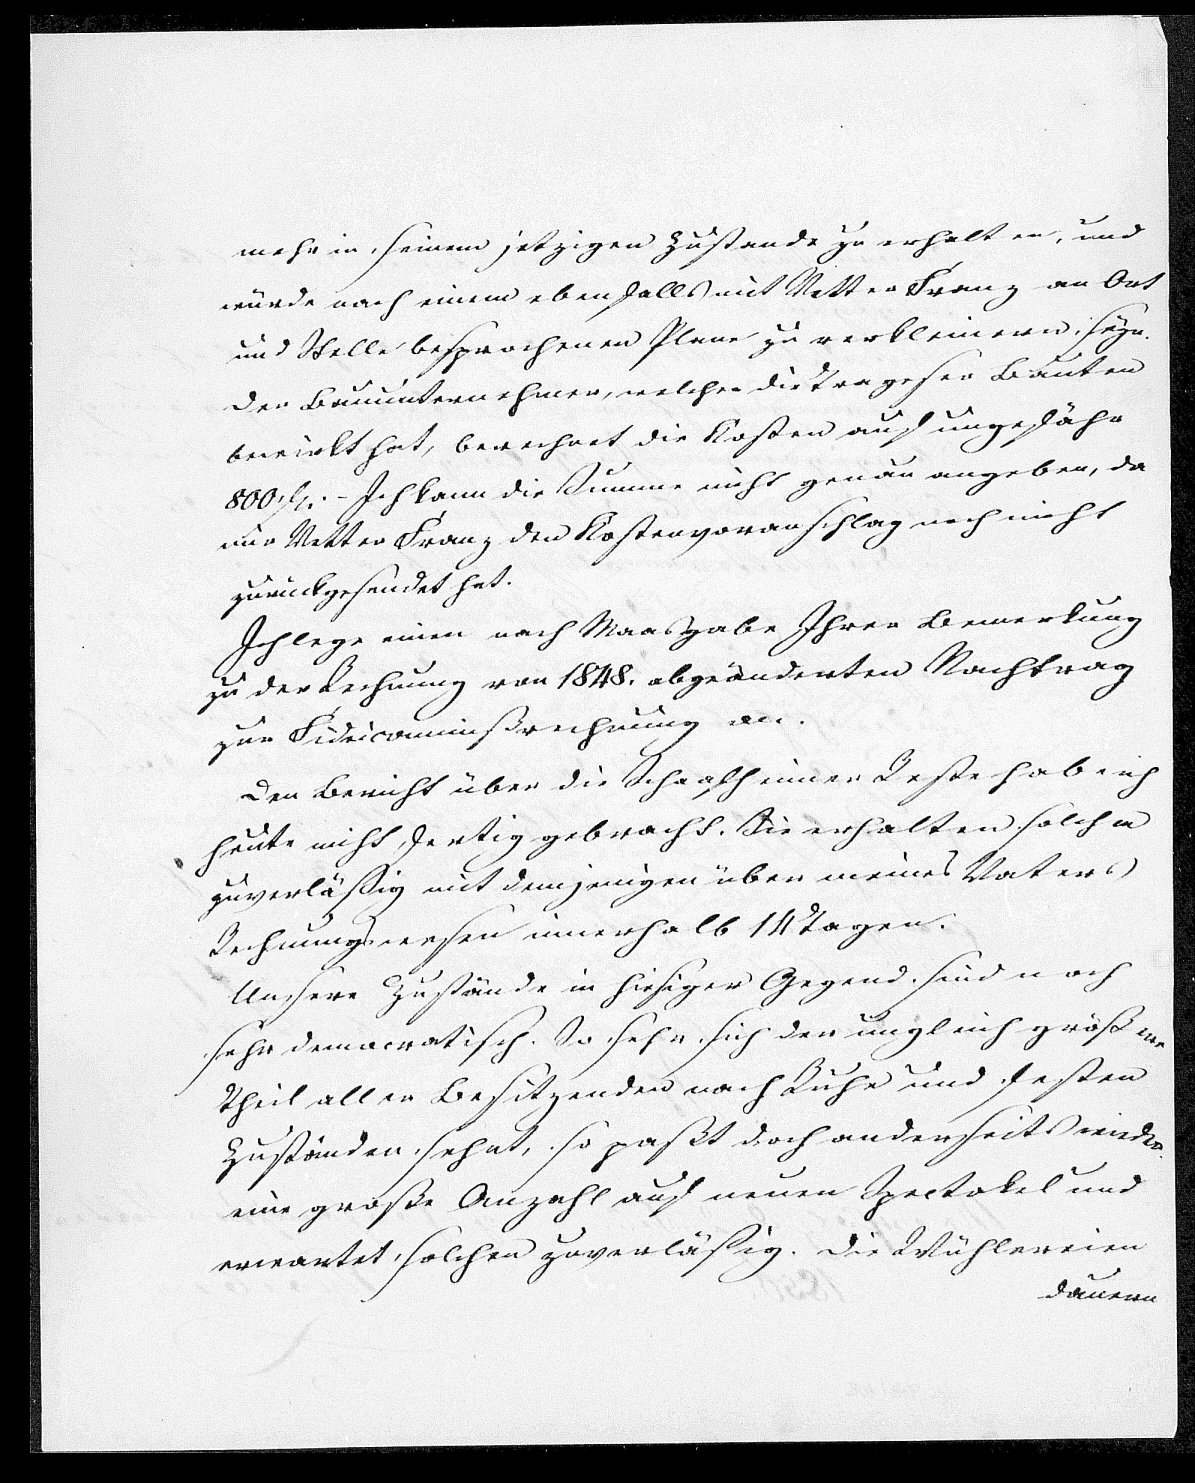 mehr in seinem jetzigen Zustande zu erhalten, und
würde nach einem ebenfalls mit Vetter Franz an Ort
und Stelle besprochenen Plane zu verkleinern seyn.
Der Bauunternehmer, welcher die Trageser Bauten
bewirkt hat, berechnet die Kosten auf ungefähr
800 fl. - Ich kann die Summe nicht genau angeben, da
mir Vetter Franz den Kostenvoranschlag noch nicht
zurückgesendet hat.
Ich lege einen nach Maasgabe Ihrer Bemerkung
zu der Rechnung von 1848. abgeänderten Nachtrag
zur Fideicommißrechnung an.
Den Bericht über die Reste hab ich
heute nicht fertig gebracht. Sie erhalten solchen
zuverläßig mit demjenigen über meines Vaters
Rechnungswesen innerhalb 14 Tagen.
Unsere Zustände in hiesiger Gegend sind noch
sehr democratisch. So sehr sich der ungleich größere
Theil aller Besitzenden nach Ruhe und festen
Zuständen sehnt, so paßt doch anderseits wieder
eine große Anzahl auf neuen Spectakel und
erwartet solchen zuverläßig. Die Wühlereien
dauern